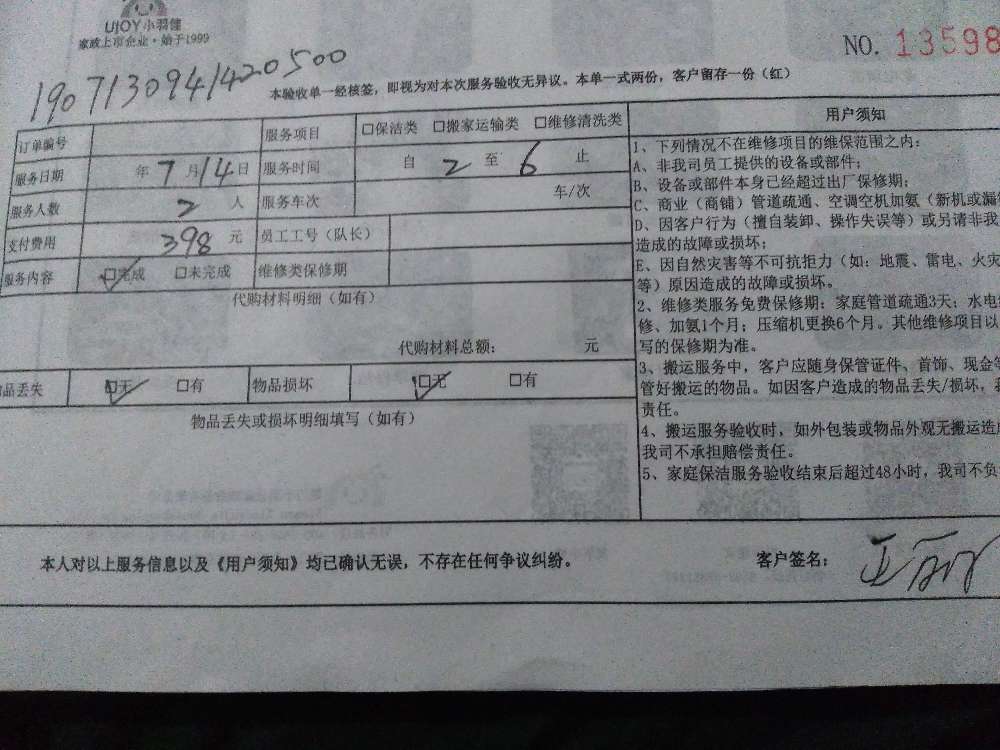 UJOY小羽佳
家政上市企业·始于1999
NO. 13598
1907130941420500
本验收单一经核签，即视为对本次服务验收无异议。本单一式两份，客户留存一份（红）
订单编号 服务项目 □保洁类 □搬家运输类 □维修清洗类
服务日期 年 7 月 14 日 服务时间 自 2 至 6 止
服务人数 2 人 服务车次 车/次
支付费用 398 元 员工工号（队长）
服务内容 □完成 □未完成 维修类保修期
代购材料明细（如有）
代购材料总额： 元
物品丢失 □无 □有 物品损坏 □无 □有
物品丢失或损坏明细填写（如有）
用户须知
1、下列情况不在维修项目的维保范围之内：
A、非我司员工提供的设备或部件；
B、设备或部件本身已经超过出厂保修期；
C、商业（商铺）管道疏通、空调空机加氨（新机或漏
D、因客户行为（擅自装卸、操作失误等）或另请非我
造成的故障或损坏；
E、因自然灾害等不可抗拒力（如：地震、雷电、火灾
等）原因造成的故障或损坏。
2、维修类服务免费保修期：家庭管道疏通3天；水电
修、加氨1个月；压缩机更换6个月。其他维修项目以
写的保修期为准。
3、搬运服务中，客户应随身保管证件、首饰、现金
管好搬运的物品。如因客户造成的物品丢失/损坏，
责任。
4、搬运服务验收时，如外包装或物品外观无搬运造
我司不承担赔偿责任。
5、家庭保洁服务验收结束后超过48小时，我司不负
本人对以上服务信息以及《用户须知》均已确认无误，不存在任何争议纠纷。 客户签名：